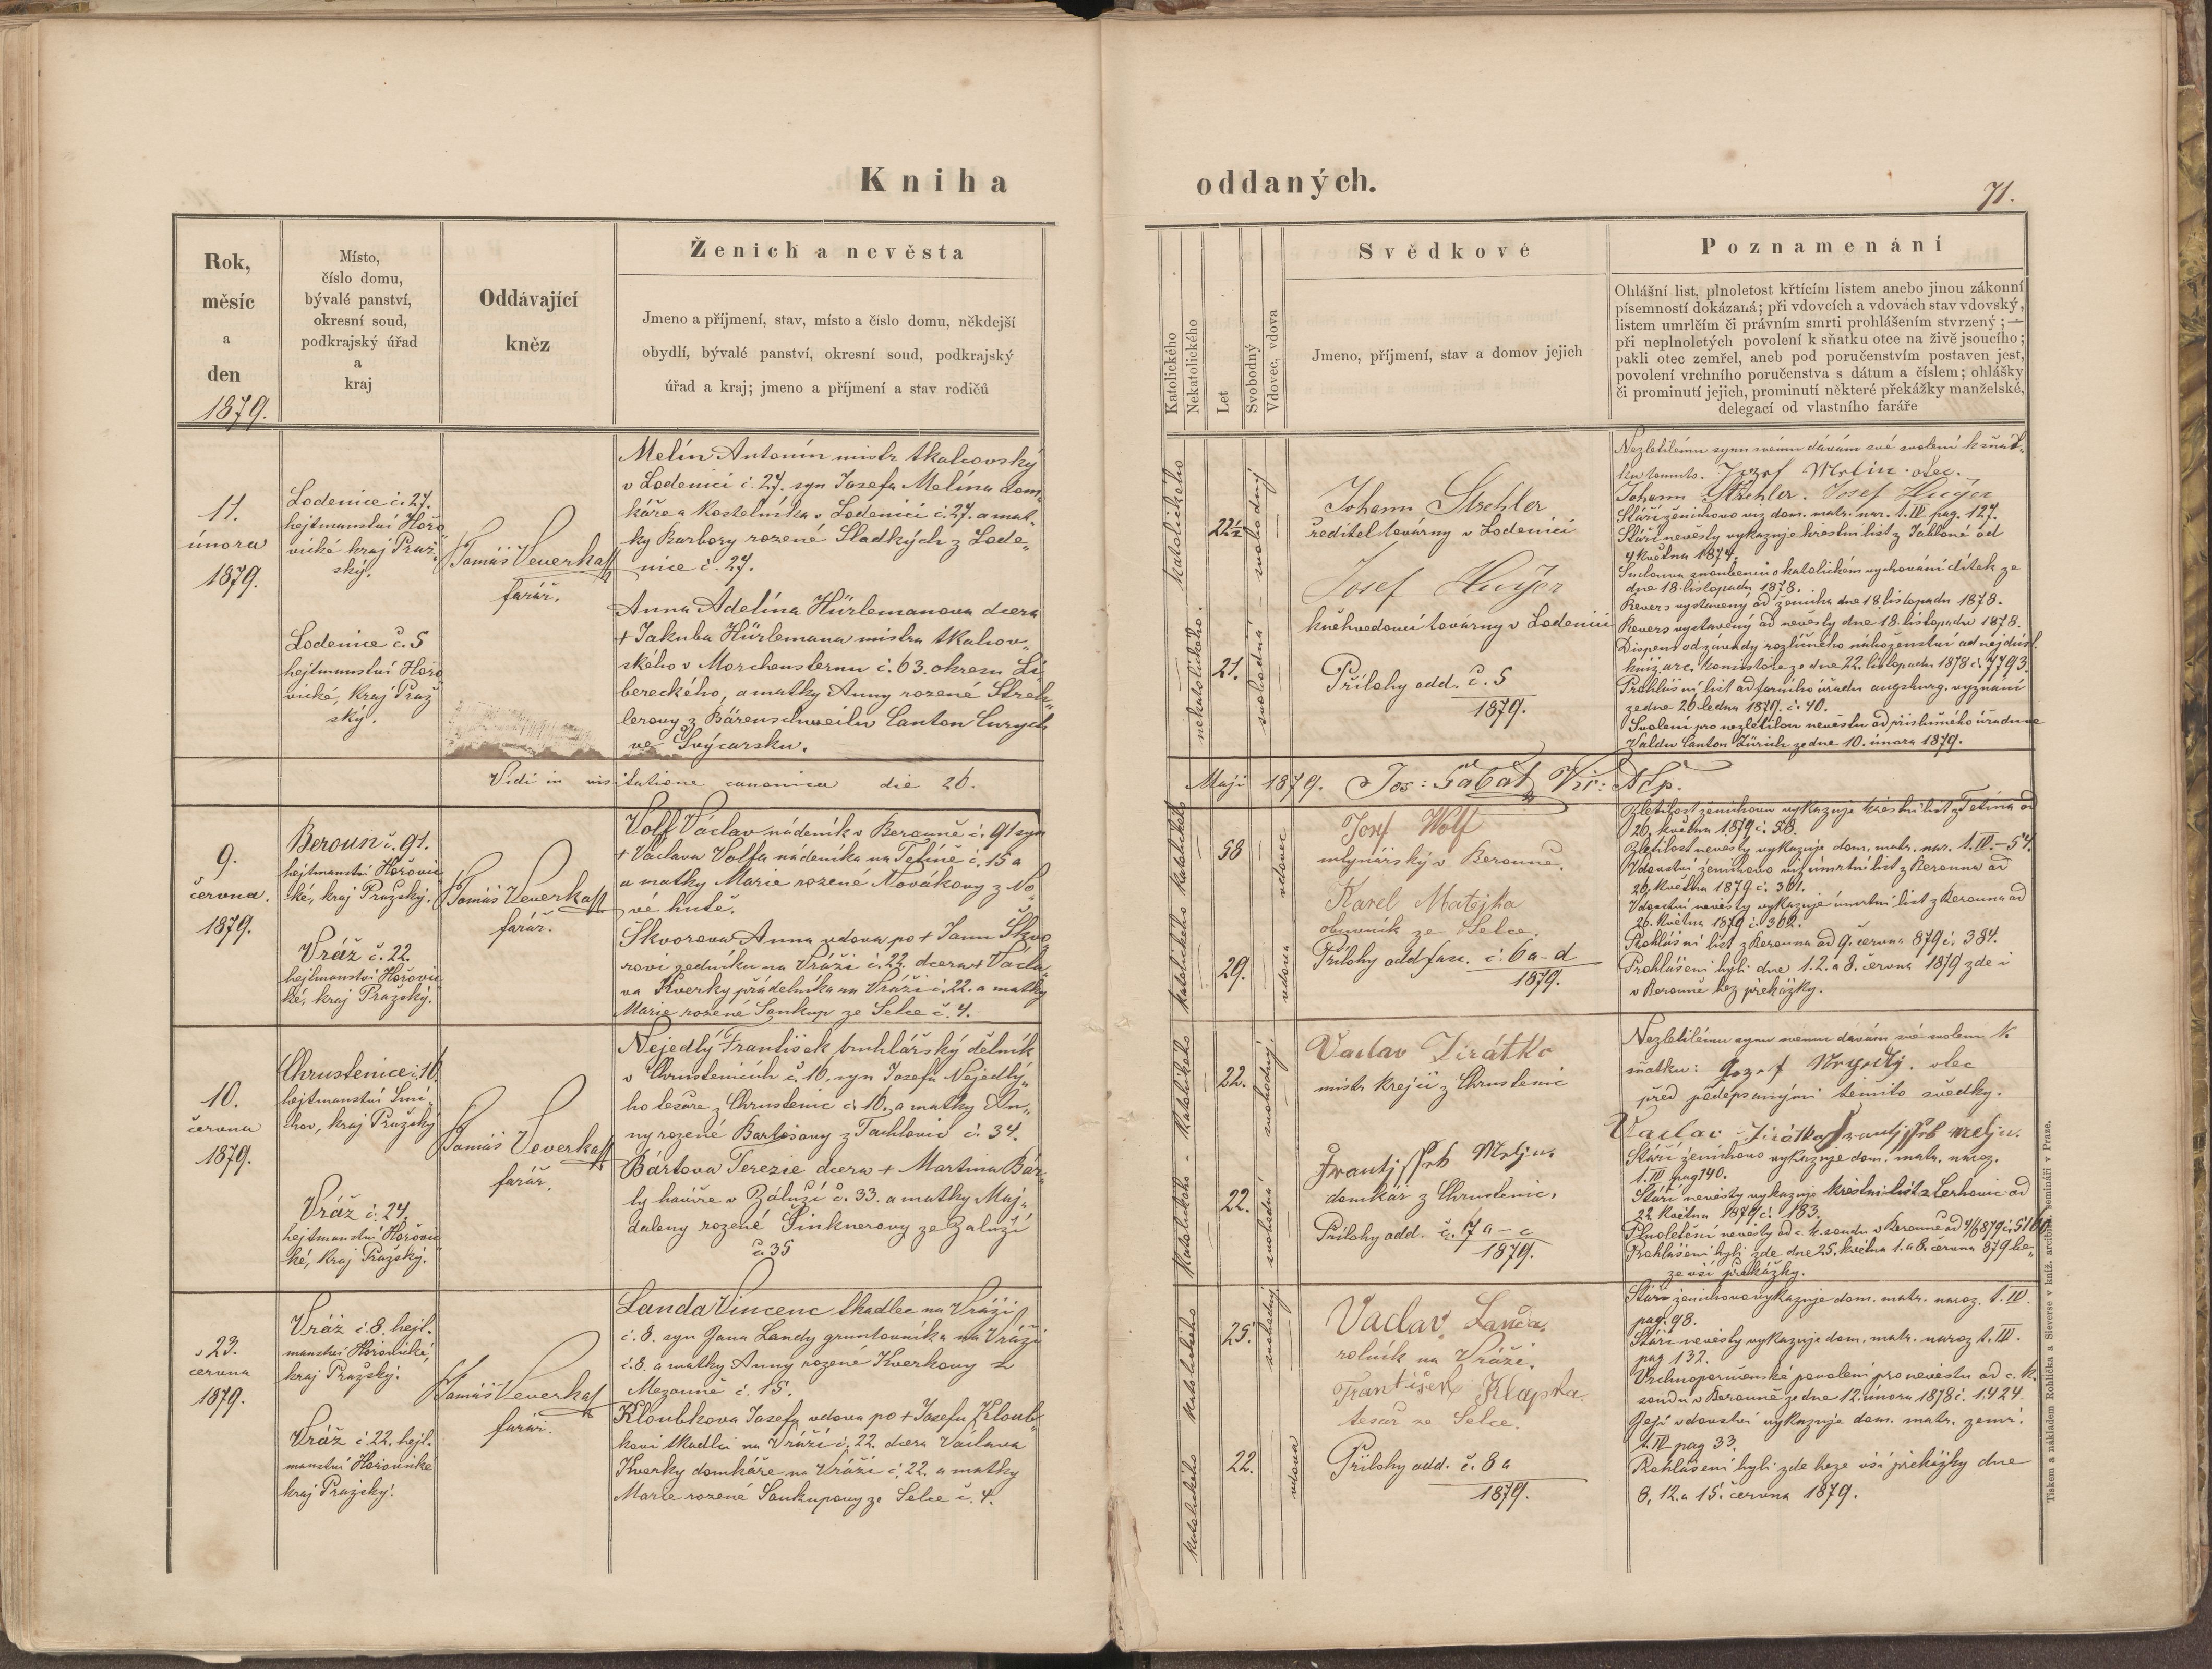 Kniha oddaných.
71.
Rok,
měsíc
a
den
1879.
Místo,
číslo domu,
bývalé panství,
okresní soud,
podkrajský úřad
a
kraj
Oddávající
kněz
Ženich a nevěsta
Jmeno a příjmení, stav, místo a číslo domu, někdejší
obydlí, bývalé panství, okresní soud, podkrajský
úřad a kraj; jmeno a příjmení a stav rodičů
Katolického
Nekatolického
Let
Svobodný
Vdovec, vdova
Svědkové
Jmeno, příjmení, stav a domov jejich
Poznamenání
Ohlášní list, plnoletost křtícím listem anebo jinou zákonní
písemností dokázaná; při vdovcích a vdovách stav vdovský,
listem umrlčím či právním smrti prohlášením stvrzený; —
při neplnoletých povolení k sňatku otce na živě jsoucího;
pakli otec zemřel, aneb pod poručenstvím postaven jest,
povolení vrchního poručenstva s dátum a číslem; ohlášky
či prominutí jejich, prominutí některé překážky manželské,
delegací od vlastního faráře
11.
února
1879.
Lodenice č. 27.
hejtmanství Hořo
vické kraj Praž
ský.
Lodenice č. 5
hejtmanství Hořo
vické, kraj Praž
ský.
Tomáš Veverka
farář.
Melín Antonín mistr tkalcovský
v Lodenici č. 27. syn Josefa Melína dom
káře a kostelníka v Lodenici č. 27. a mat„
ky Barbory rozené Sladkých z Lode„
nice č. 27.
Anna Adelína Hürlemanova dcera
+ Jakuba Hürlemana mistra tkalcov„
ského v Morchensternu č. 63. okresu Li
bereckého, a matky Anny rozené Streh„
lerovy z Bärenschweilu Canton Curych
ve Švýcarsku.
katolického
nekatolického.
22½
21.
svobodný
svobodná
Johann Strehler
ředitel továrny v Lodenici
Josef Huyer
knihvedoucí továrny v Lodenici
Přílohy odd. č. 5
1879.
Nezletilému synu svému dávám své svolení k sňat„
ku tomuto. Jozef Melin otec.
Johann Strehler. Josef Huyer
Stáří ženichovo viz dom. matr. nar. t. IV. pag. 127.
Stáří nevěsty vykazuje křestní list z Jabloné od
4 května 1874.
Smlouva snoubenců o katolickém vychování dítek ze
dne 18. listopadu 1878.
Revers vystavený od ženicha dne 18. listopadu 1878.
Revers vystavený od nevěsty dne 18. listopadu 1878.
Dispens od závady rozličného náboženství od nejdůst.
kníž. arc. konsistoře ze dne 22. listopadu 1878 č. 7793.
Prohlášní list od farního úřadu augsburg. vyznání
ze dne 26. ledna 1879. č. 40.
Svolení pro nezletilou nevěstu od příslušného úřadu ve
Valdu Canton Zürich ze dne 10. února 1879.
Vidi in visitatione canonica die 26. Maji 1879. Jos: Vic:
9.
června.
1879.
Beroun č. 91.
hejtmanství Hořovic
ké, kraj Pražský.
Vráž č. 22.
hejtmanství Hořovic
ké, kraj Pražský.
Tomáš Veverka
farář.
Volf Václav nádeník v Berouně č. 91 syn
+ Václava Volfa nádeníka na Tetíně č. 15 a
a matky Marie rozené Novákovy z No
vé hutě.
Škvorova Anna vdova po + Janu Škvo
rovi zedníku na Vráži č. 22. dcera + Václa
va Kverky prádelníka na Vráži č. 22. a matky
Marie rozené Soukup ze Selce č. 4.
katolického
katolického
58
29.
vdovec
vdova
Josef Wolf
mlynářský v Berouně.
Karel Matějka
obuvník ze Selce.
Přílohy odd fasc. č. 6 a–d
1879.
Zletilost ženichovu vykazuje křestní list z Tetína od
26. května 1879 č. 58.
Zletilost nevěsty vykazuje dom. matr. nar. t. IV. – 54.
Vdovství ženichovo viz úmrtní list z Berouna od
26. května 1879 č. 361.
Vdovství nevěsty vykazuje úmrtní list z Berouna od
26. května 1879 č. 362.
Prohlášní list z Berouna od 9. června 879 č. 384.
Prohlášení byli dne 1. 2. a 8. června 1879 zde i
v Berouně bez překážky.
10.
června
1879.
Chrustenice č. 16.
hejtmanství Smí„
chov, kraj Pražský
Vráž č. 24.
hejtmanství Hořovic
ké, kraj Pražský.
Tomáš Veverka
farář.
Nejedlý František truhlářský dělník
v Chrustenicích č. 16. syn Josefa Nejedlý„
ho tesaře z Chrustenic č. 16. a matky An„
ny rozené Bartošovy z Tachlovic č. 34.
Bártova Terezie dcera + Martina Bár
ty havíře v Záluží č. 33. a matky Maj„
daleny rozené Šinknerovy ze Zaluží
č. 35
Katolického
Katolického
22.
22.
svobodný.
svobodná
Vaclav Jirátko
mistr krejčí z Chrustenic
domkář z Chrustenic.
Přílohy odd. č. 7 a – c
1879.
Nezletilému synu svému dávám své svolení k
sňatku: Jozef Nejedlý. otec
před podepsanými těmito svědky.
Vaclav Jirátko
Stáří ženichovo vykazuje dom. matr. naroz.
t. IV pag 140.
Stáří nevěsty vykazuje křestní list z Cerhovic od
22 května 1879 č. 183.
Prohlášení byli zde dne 25. května 1. a 8. června 879 be„
ze vší překážky.
23.
června
1879.
Vráž č. 8. hejt„
manství Hořovické,
kraj Pražský.
Vráž č. 22. hejt„
manství Hořovické
kraj Pražský.
Tomáš Veverka
farář.
Landa Vincenc tkadlec na Vráži
č. 8. syn Jana Landy gruntovníka na Vráži
č. 8. a matky Anny rozené Kverkovy z
Mezouně č. 15.
Kloubkova Josefa vdova po + Josefu Kloub„
kovi tkadlci na Vráži č. 22. dcera Václava
Kverky domkáře na Vráži č. 22. a matky
Marie rozené Soukupovy ze Selce č. 4.
katolického
katolického
25.
22.
svobodný
vdova
Vaclav Landa.
rolník na Vráži.
František Klapka
tesař ze Selce.
Přílohy odd. č. 8 a
1879.
Stáří ženichovo vykazuje dom. matr. naroz. t. IV.
pag. 98.
Stáří nevěsty vykazuje dom. matr. naroz t. IV.
pag 132.
Vrchnoporučenské povolení pro nevěstu od c. k.
soudu v Berouně ze dne 12. února 1878 č. 1424.
Její vdovství vykazuje dom. matr. zemř.
t. IV pag 33.
Prohlášení byli zde beze vší překážky dne
8, 12. a 15. června 1879.
Tiskem a nákladem Rohlíčka a Sieverse v kníž. arcibisk. semináři v Praze.